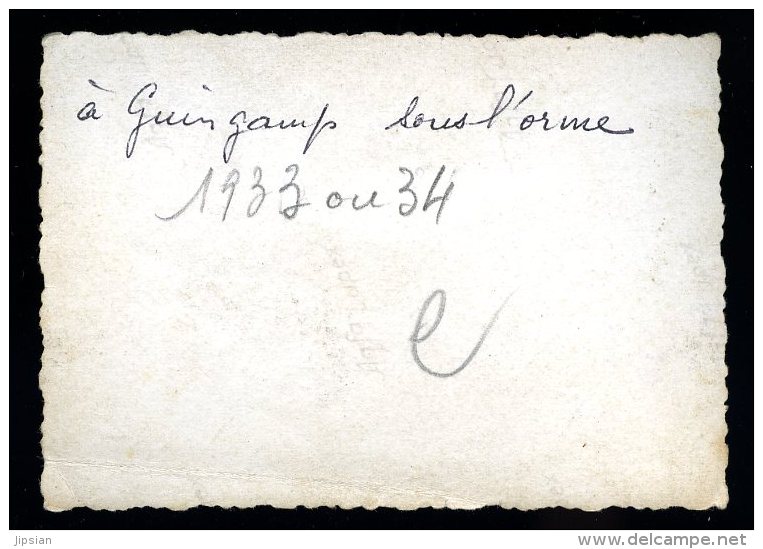 à Guingamp sous l'orme
1933 ou 34
e
jipsian
delcampe.net